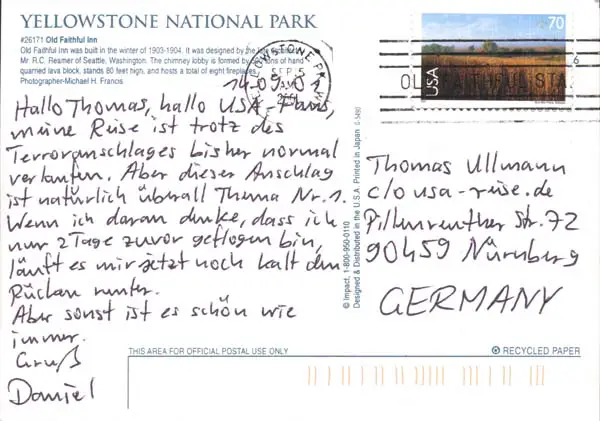 YELLOWSTONE NATIONAL PARK
#26171 Old Faithful Inn
Old Faithful Inn was built in the winter of 1903-1904. It was designed by the
Mr. R.C. Reamer of Seattle, Washington. The chimney lobby is formed by tons of hand
quarried lava block, stands 80 feet high, and hosts a total of eight fireplaces.
Photographer-Michael H. Francis
14-09-01
Hallo Thomas, hallo USA-Fans,
meine Reise ist trotz des
Terroranschlages bisher normal
verlaufen. Aber dieser Anschlag
ist natürlich überall Thema Nr. 1.
Wenn ich daran denke, dass ich
nur 2 Tage zuvor geflogen bin,
läuft es mir jetzt noch kalt den
Rücken runter.
Aber sonst ist es schön wie
immer.
Gruß
Daniel
YELLOWSTONE
SEP
AM
OLD FAITHFUL STA.
70
USA
Thomas Ullmann
c/o usa-reise.de
Pillenreuther Str. 72
90459 Nürnberg
GERMANY
© Impact, 1-800-950-0110
Designed & Distributed in the U.S.A. Printed in Japan
THIS AREA FOR OFFICIAL POSTAL USE ONLY
RECYCLED PAPER